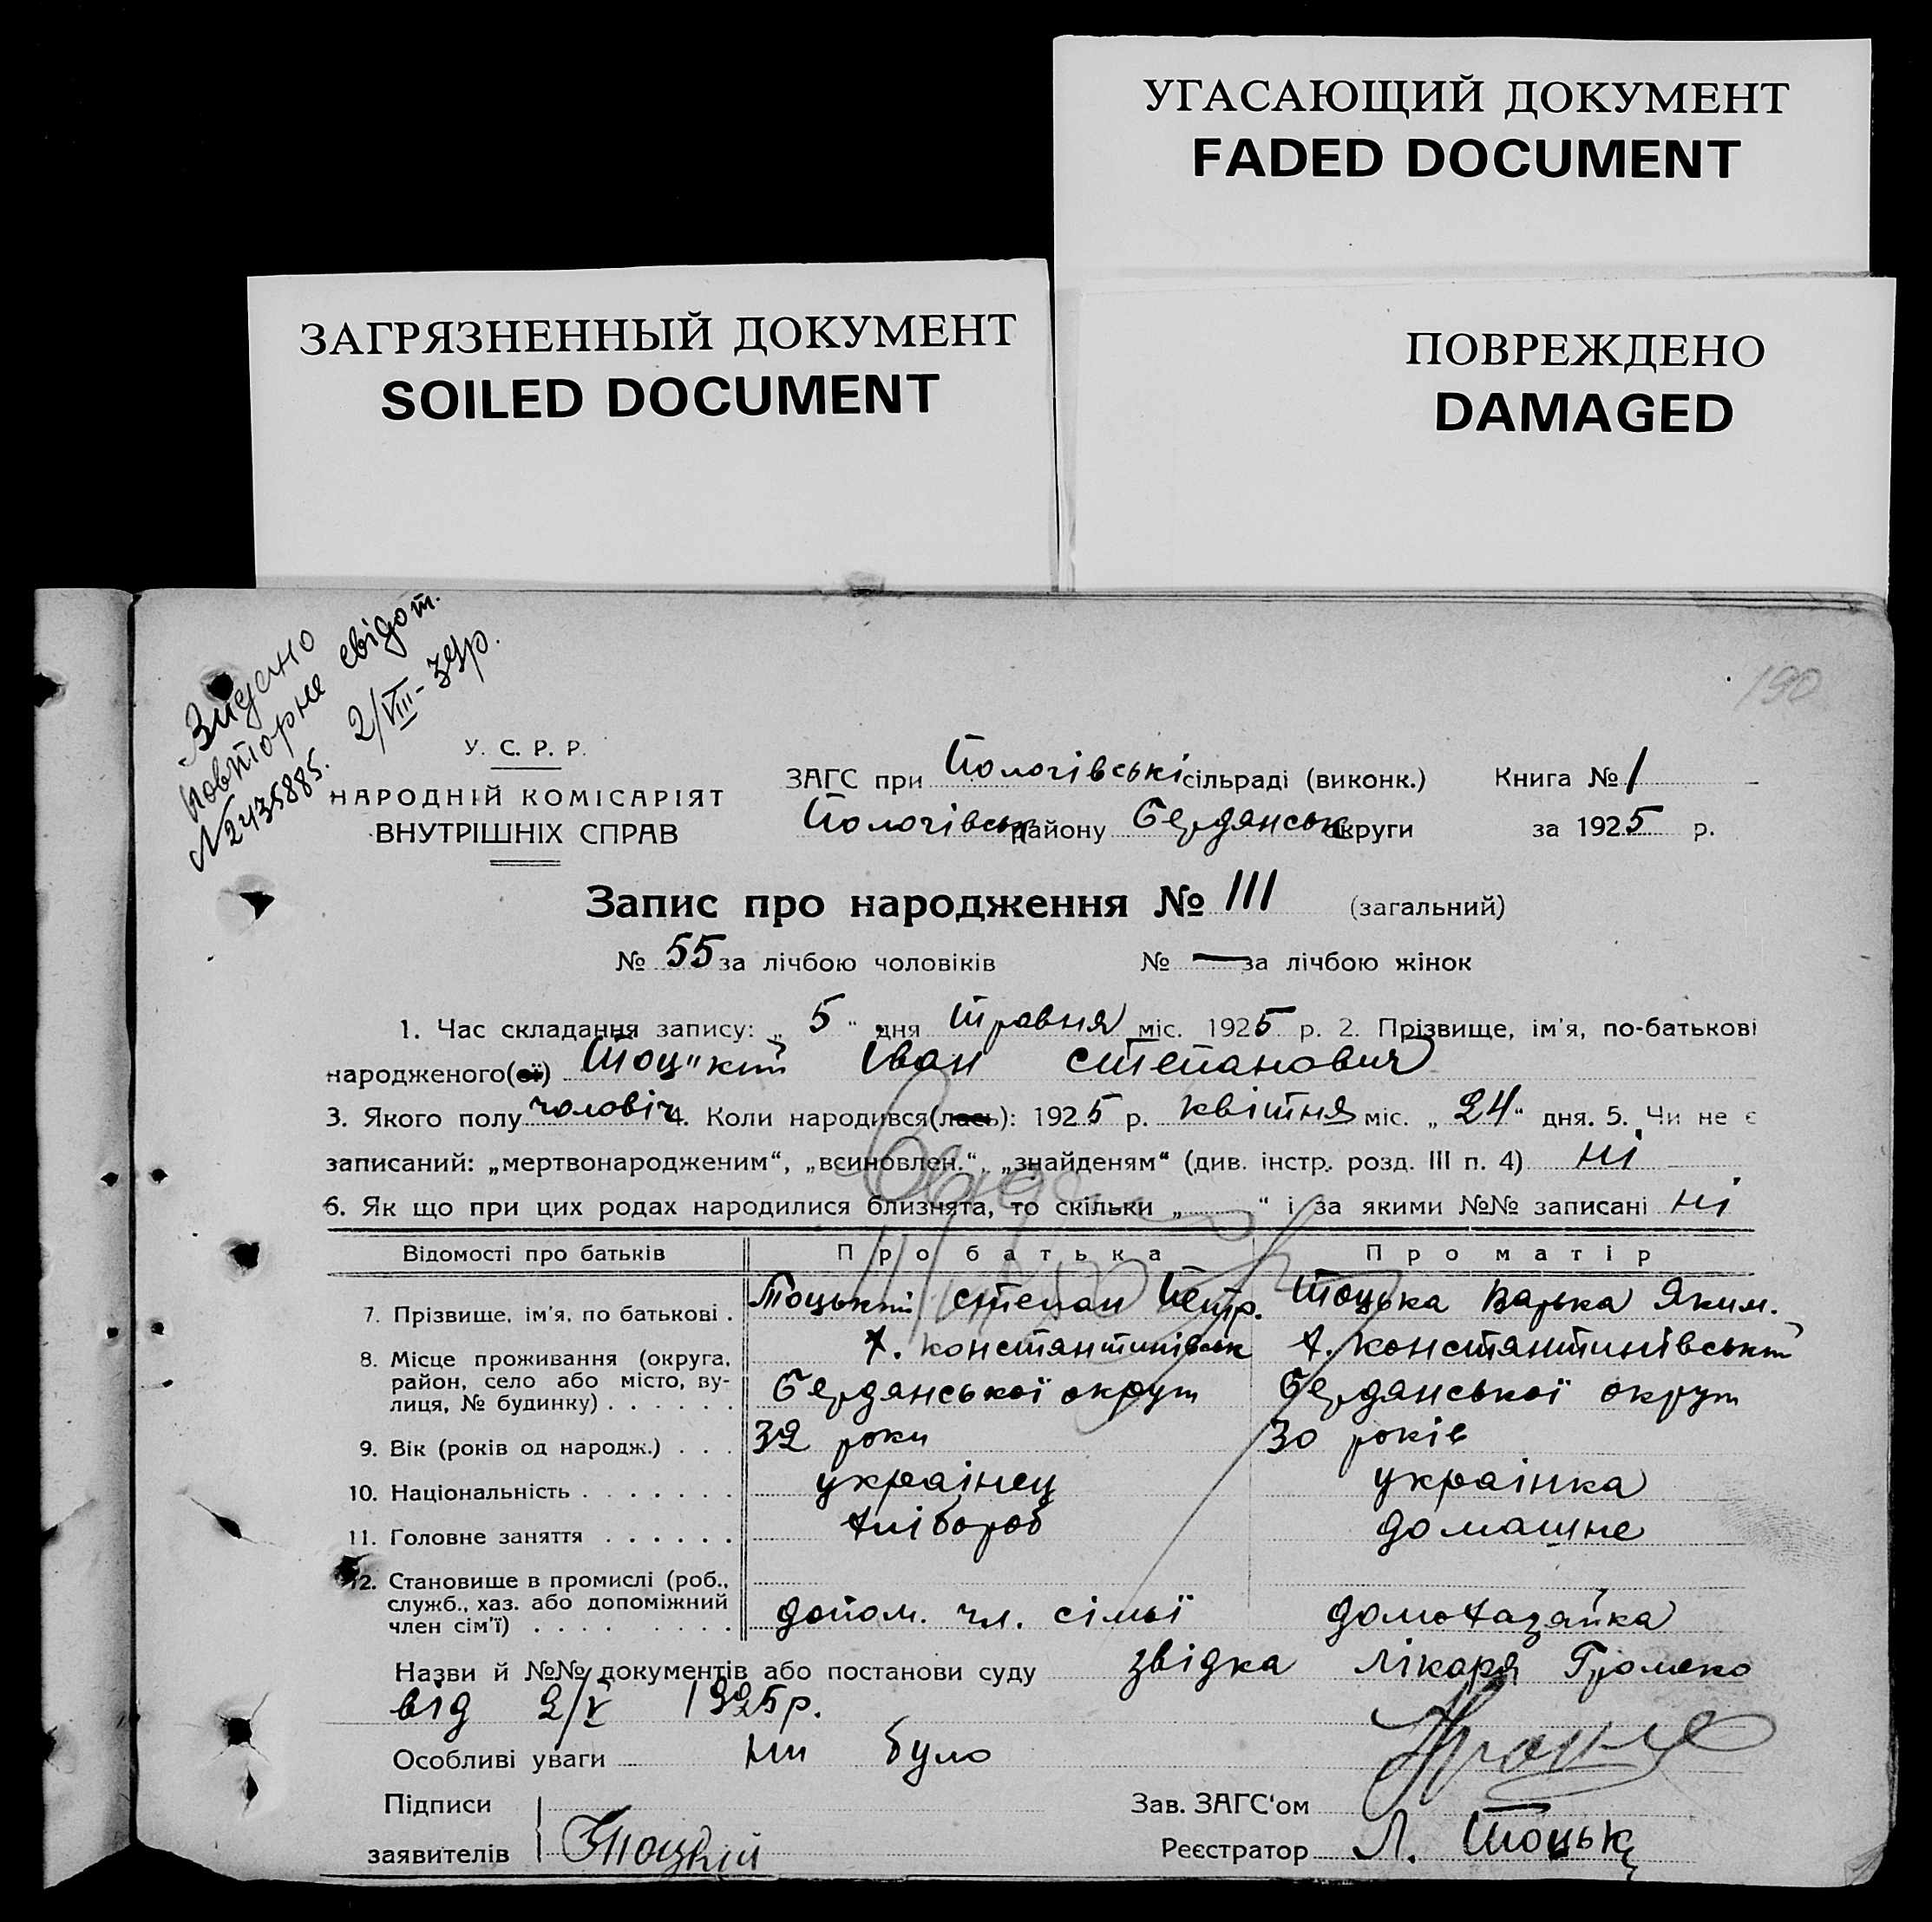 УГАСАЮЩИЙ ДОКУМЕНТ
FADED DOCUMENT
ЗАГРЯЗНЕННЫЙ ДОКУМЕНТ
SOILED DOCUMENT
ПОВРЕЖДЕНО
DAMAGED
Видано
повторне свідот.
№2435885. 2/VIII-39р.
190
У. С. Р. Р.
НАРОДНІЙ КОМІСАРІЯТ
ВНУТРІШНІХ СПРАВ
ЗАГС при Пологівські сільраді (виконк.) Книга № 1
Пологівськ району Бердянськ округи за 1925 р.
Запис про народження № 111 (загальний)
№ 55 за лічбою чоловіків № — за лічбою жінок
1. Час складання запису: „ 5 “ дня травня міс. 1925 р. 2. Прізвище, ім'я, по-батькові
народженого(ої) Тоц"кий Іван Степанович
3. Якого полу чоловіч 4. Коли народився(лась): 1925 р. квітня міс. „ 24 “ дня. 5. Чи не є
записаний: „мертвонародженим“, „всиновлен.“, „знайденям“ (див. інстр. розд. III п. 4) ні
6. Як що при цих родах народилися близнята, то скільки „ “ і за якими №№ записані ні
Відомості про батьків Про батька Про матір
7. Прізвище, ім'я, по батькові . Тоцький Степан Петр. Тоцька Варька Яким.
8. Місце проживання (округа, х. Константинівськ х. Константинівський
район, село або місто, ву-
лиця, № будинку) . . . . . . Бердянської округи Бердянської округи
9. Вік (років од народж.) . . . 32 роки 30 років
10. Національність . . . . . . . українец українка
11. Головне заняття . . . . . . хлібороб домашне
12. Становище в промислі (роб.,
служб., хаз. або допоміжний
член сім'ї) . . . . . . . . допом. чл. сімьї домохазяйка
Назви й №№ документів або постанови суду звідка лікаря Громеко
від 2/V 1925р.
Особливі уваги ни було
Підписи Зав. ЗАГС'ом
заявителів Тоцкий Реєстратор Л. Тоцьк